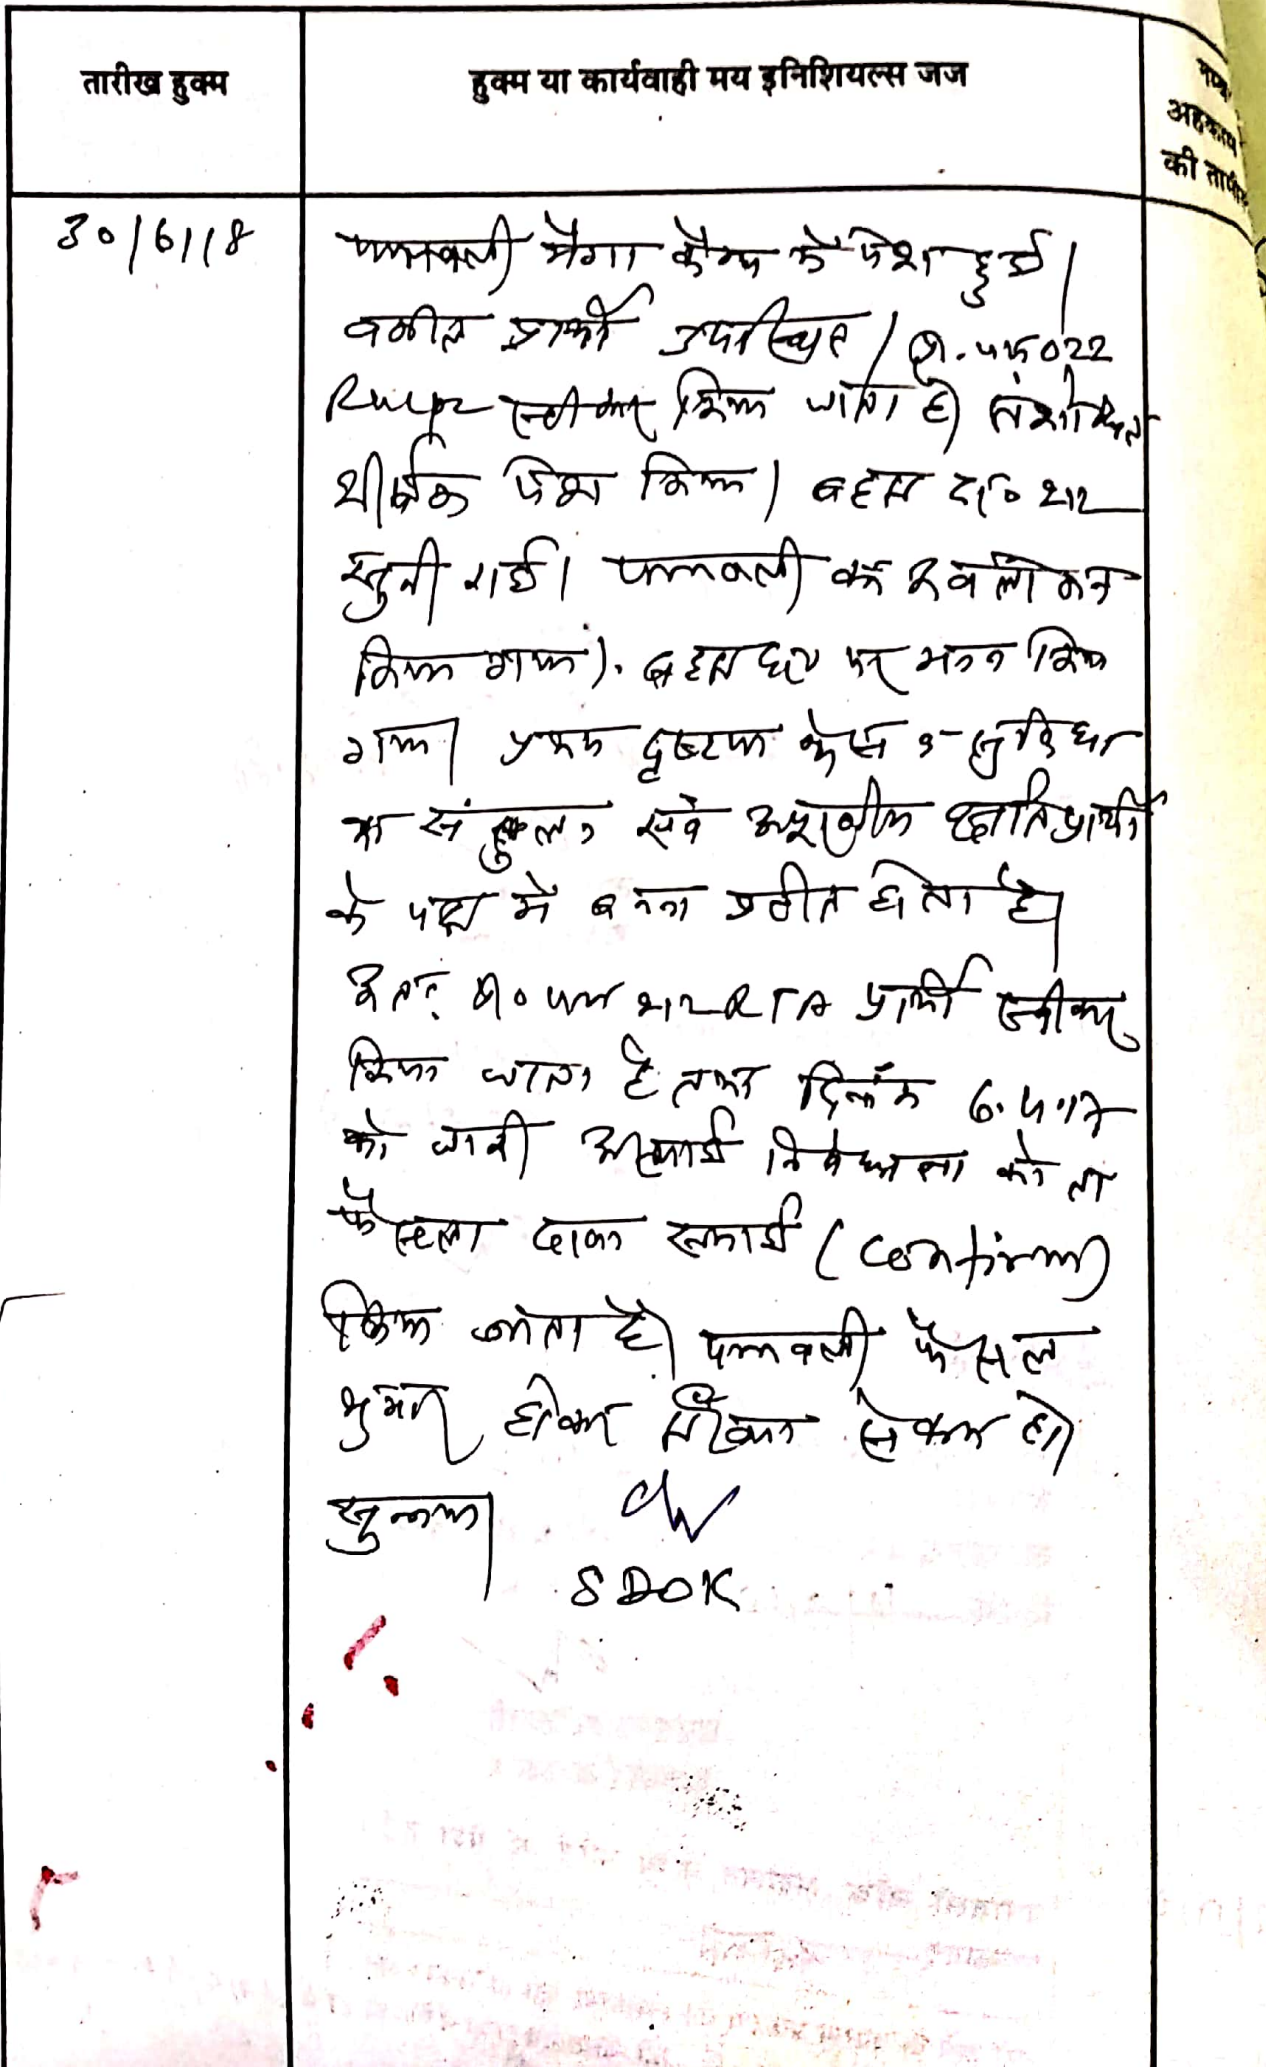 तारीख हुक्म
हुक्म या कार्यवाही मय इनिशियल्स जज
अहकाम
की तामील
30/6/18
पत्रावली मैगा कैम्प में पेश हुई।
वकील प्रार्थी उपस्थित। प्रा. पत्र 022
स्वीकार किया जाता है। संशोधित
शीर्षक पेश किया। बहस द० 212
सुनी गई। पत्रावली का अवलोकन
किया गया। बहस पर मनन किया
गया। प्रथम दृष्टया केस सुविधा
का संतुलन एवं अपूरणीय क्षति प्रार्थी
के पक्ष में बनना प्रतीत होता है।
अतः प्रा० पत्र 212 RTA प्रार्थी स्वीकार
किया जाता है तथा दिनांक 6.4.17
को जारी अस्थाई निषेधाज्ञा को ता
फैसला दावा स्थाई (Confirm)
किया जाता है। पत्रावली फैसल
शुमार होकर
सुनाया।
SDOK